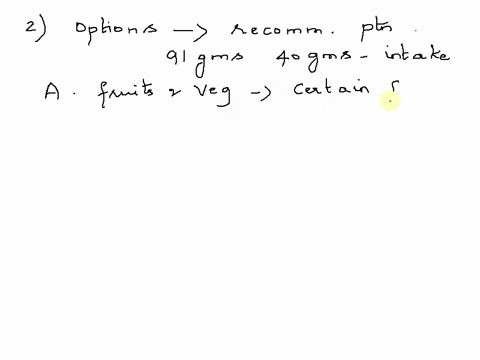 2) Options -> recomm. ptn.
91 gms 40 gms - intake
A. fruits & Veg -> Certain